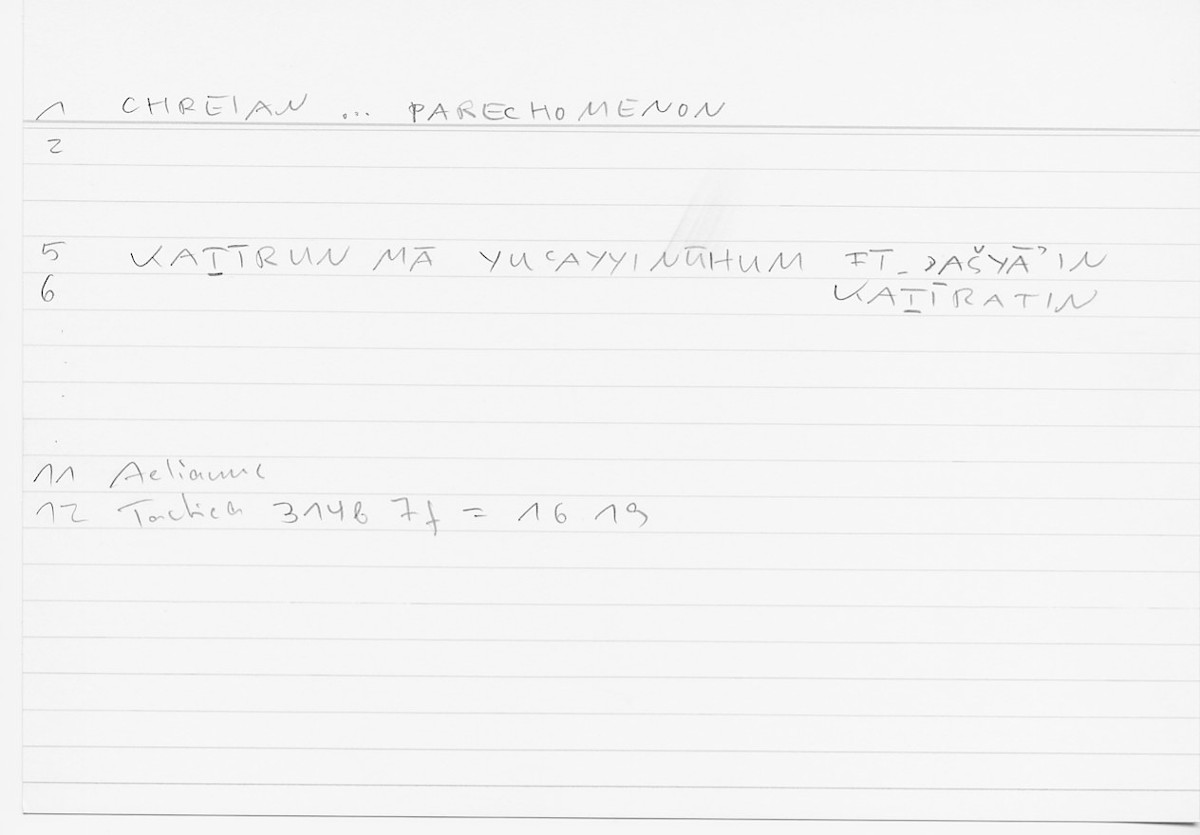 1 CHREIAN ... PARECHOMENON
2
5 KAṮĪRUN MĀ YUʿAYYINŪHUM FĪ_ʾAŠYĀʾIN
6 KAṮĪRATIN
11 Aelianus
12 Tactica 314b 7f = 16 19